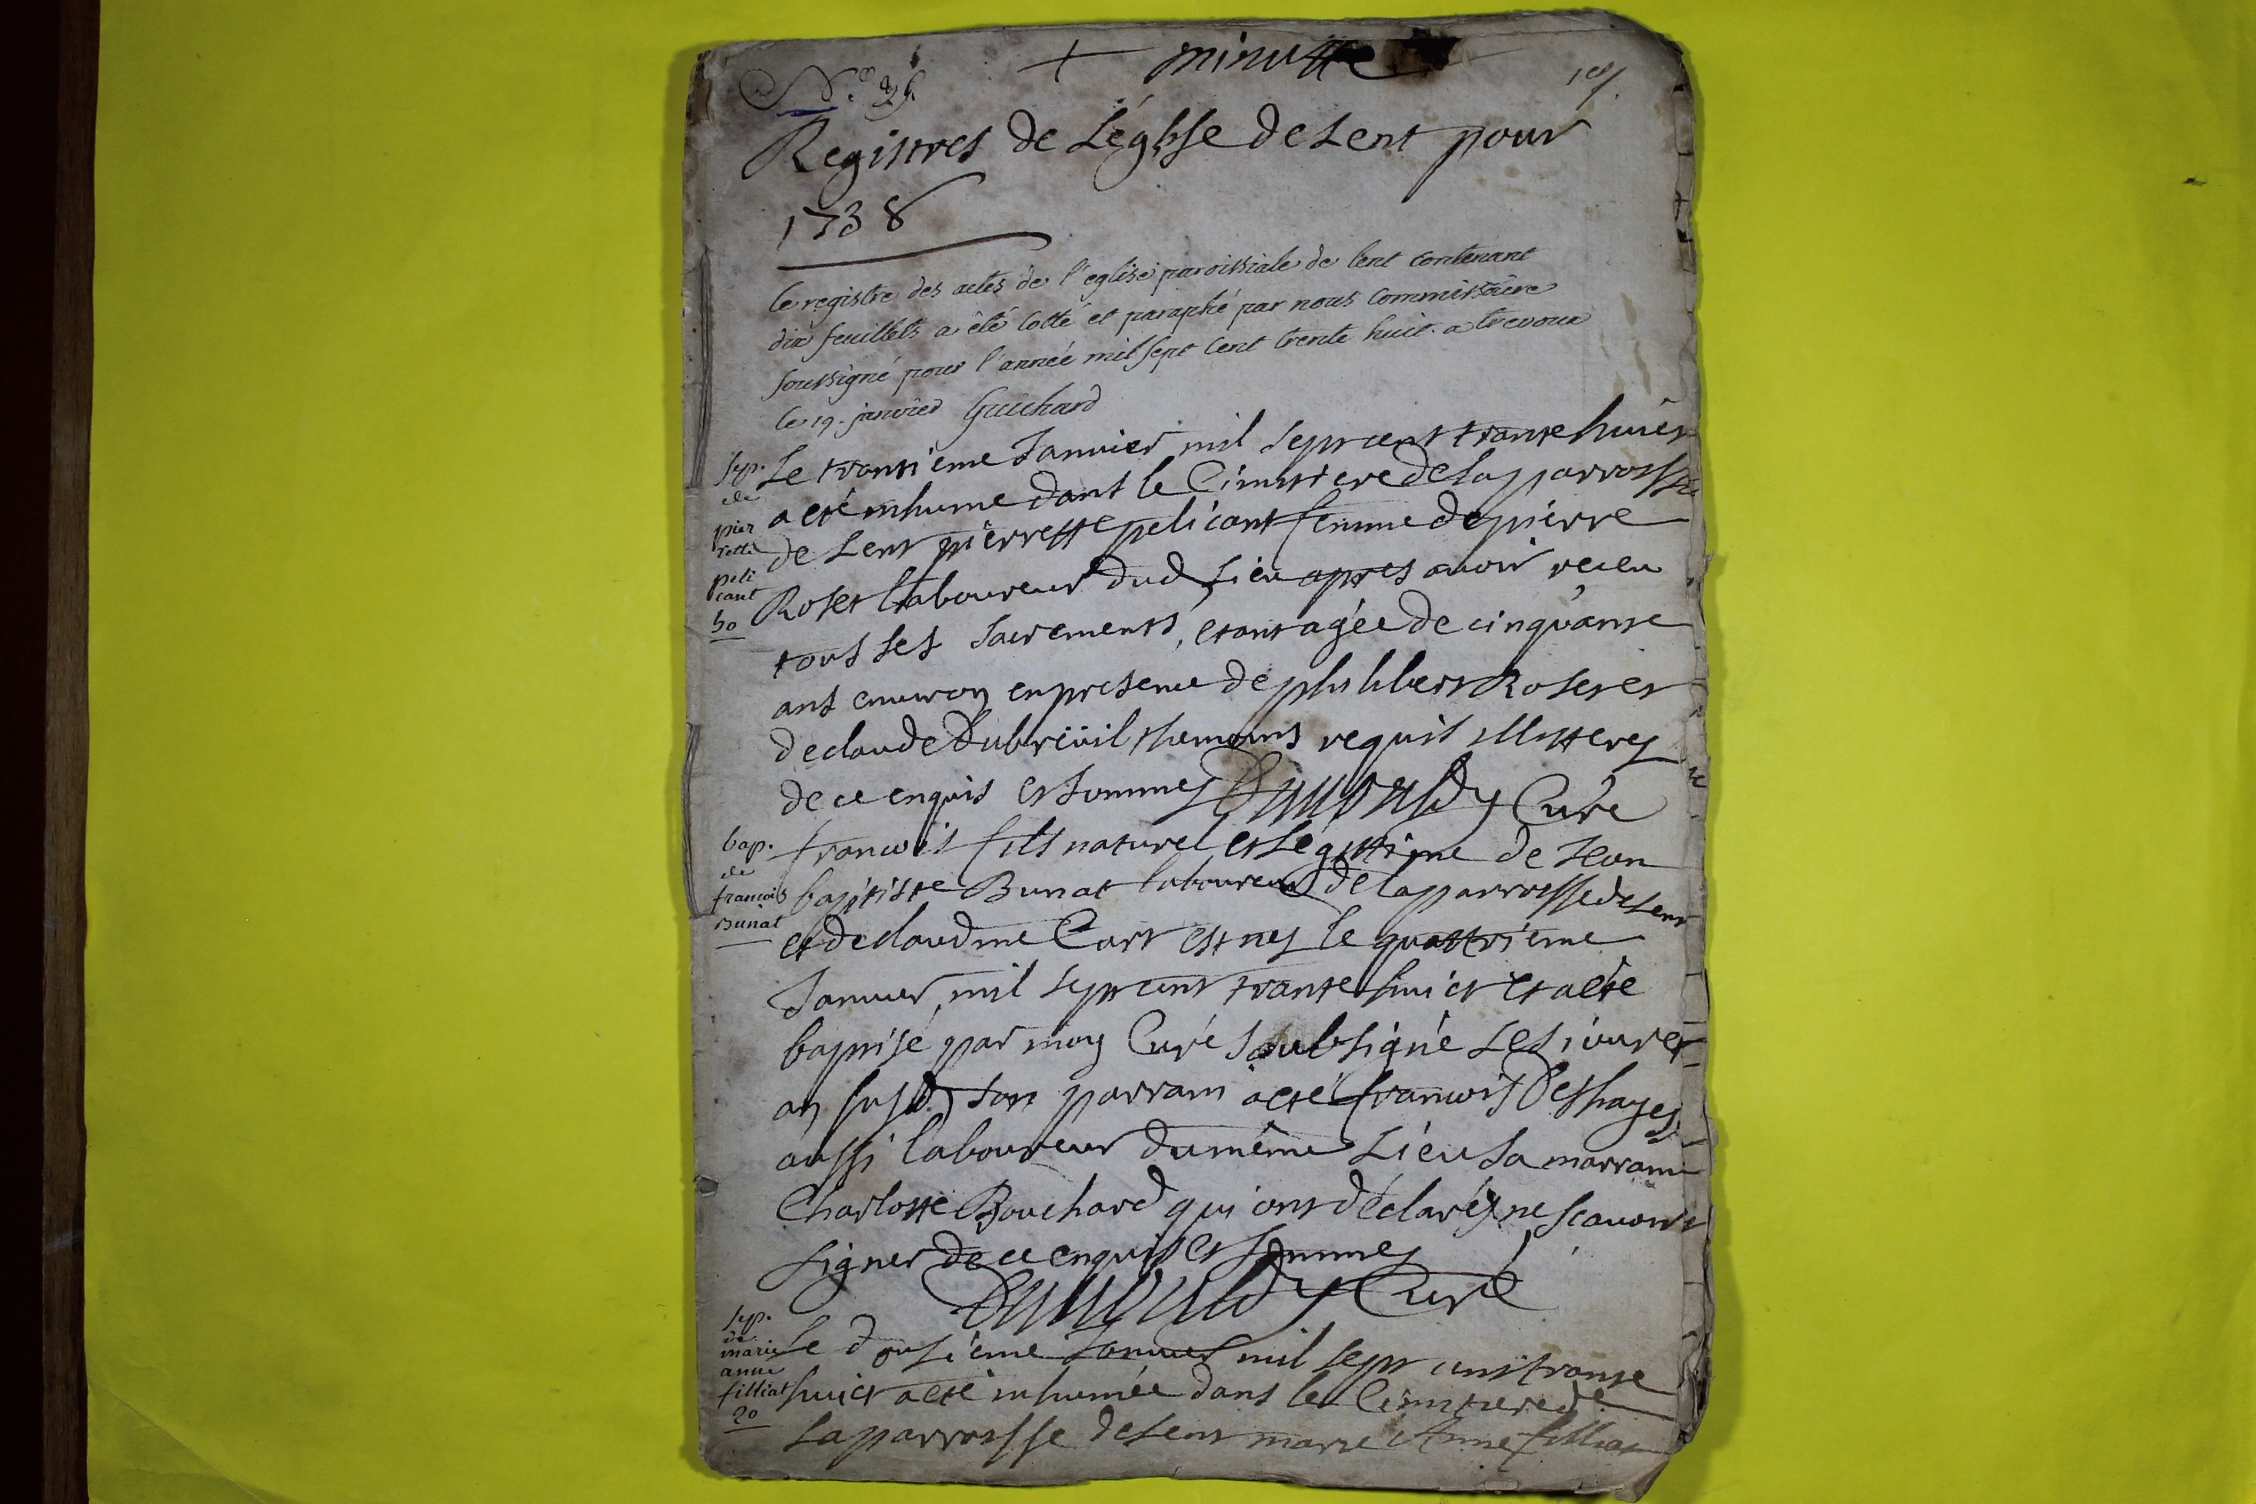 + minutte
Registres de Léglise de Lent pour
1738
le registre des actes de l'eglise paroissiale de lent contenant
dix feuillets a êté cotté et paraphé par nous Commissaire
soussigné pour l'année mil sept cent trente huit. a trevoux
le 19. janvier Guichard
sep.
de
pier
rette
peli
cant
50
Le Janvier mil sept cent trante huict
a eté inhume dans le Cimitiere de la parroisse
de Lent pierrette pelicant femme de pierre
Roset laboureur dud Lieu apres avoir receu
tous ses sacrements, etant agée de cinquante
ans environ en presence de philibert Roset et
de claude Dubreüil themoins requis illitterez
de ce enquis et sommez Curé
bap.
de
francois
Bunat
francois fils naturel et légittime de Jean
baptiste Bunat laboureur de la parroisse de Lent
et de claudine Cart est né le quattrieme
Janvier mil sept cent trante huict et a eté
baptisé par moy Curé soubsigné les jour et
an susd. son parrain a eté francois Deshayes
aussi laboureur du même Lieu sa marraine
Charlotte Bouchard qui ont déclaré ne scavoir
signer de ce enquis et sommez
Curé
sep.
de
marie
anne
filliat
20
Le douzième Janvier mil sept cent trante
huict a eté inhumée dans le Cimitiere de
La parroisse de Lent marie Anne filliat